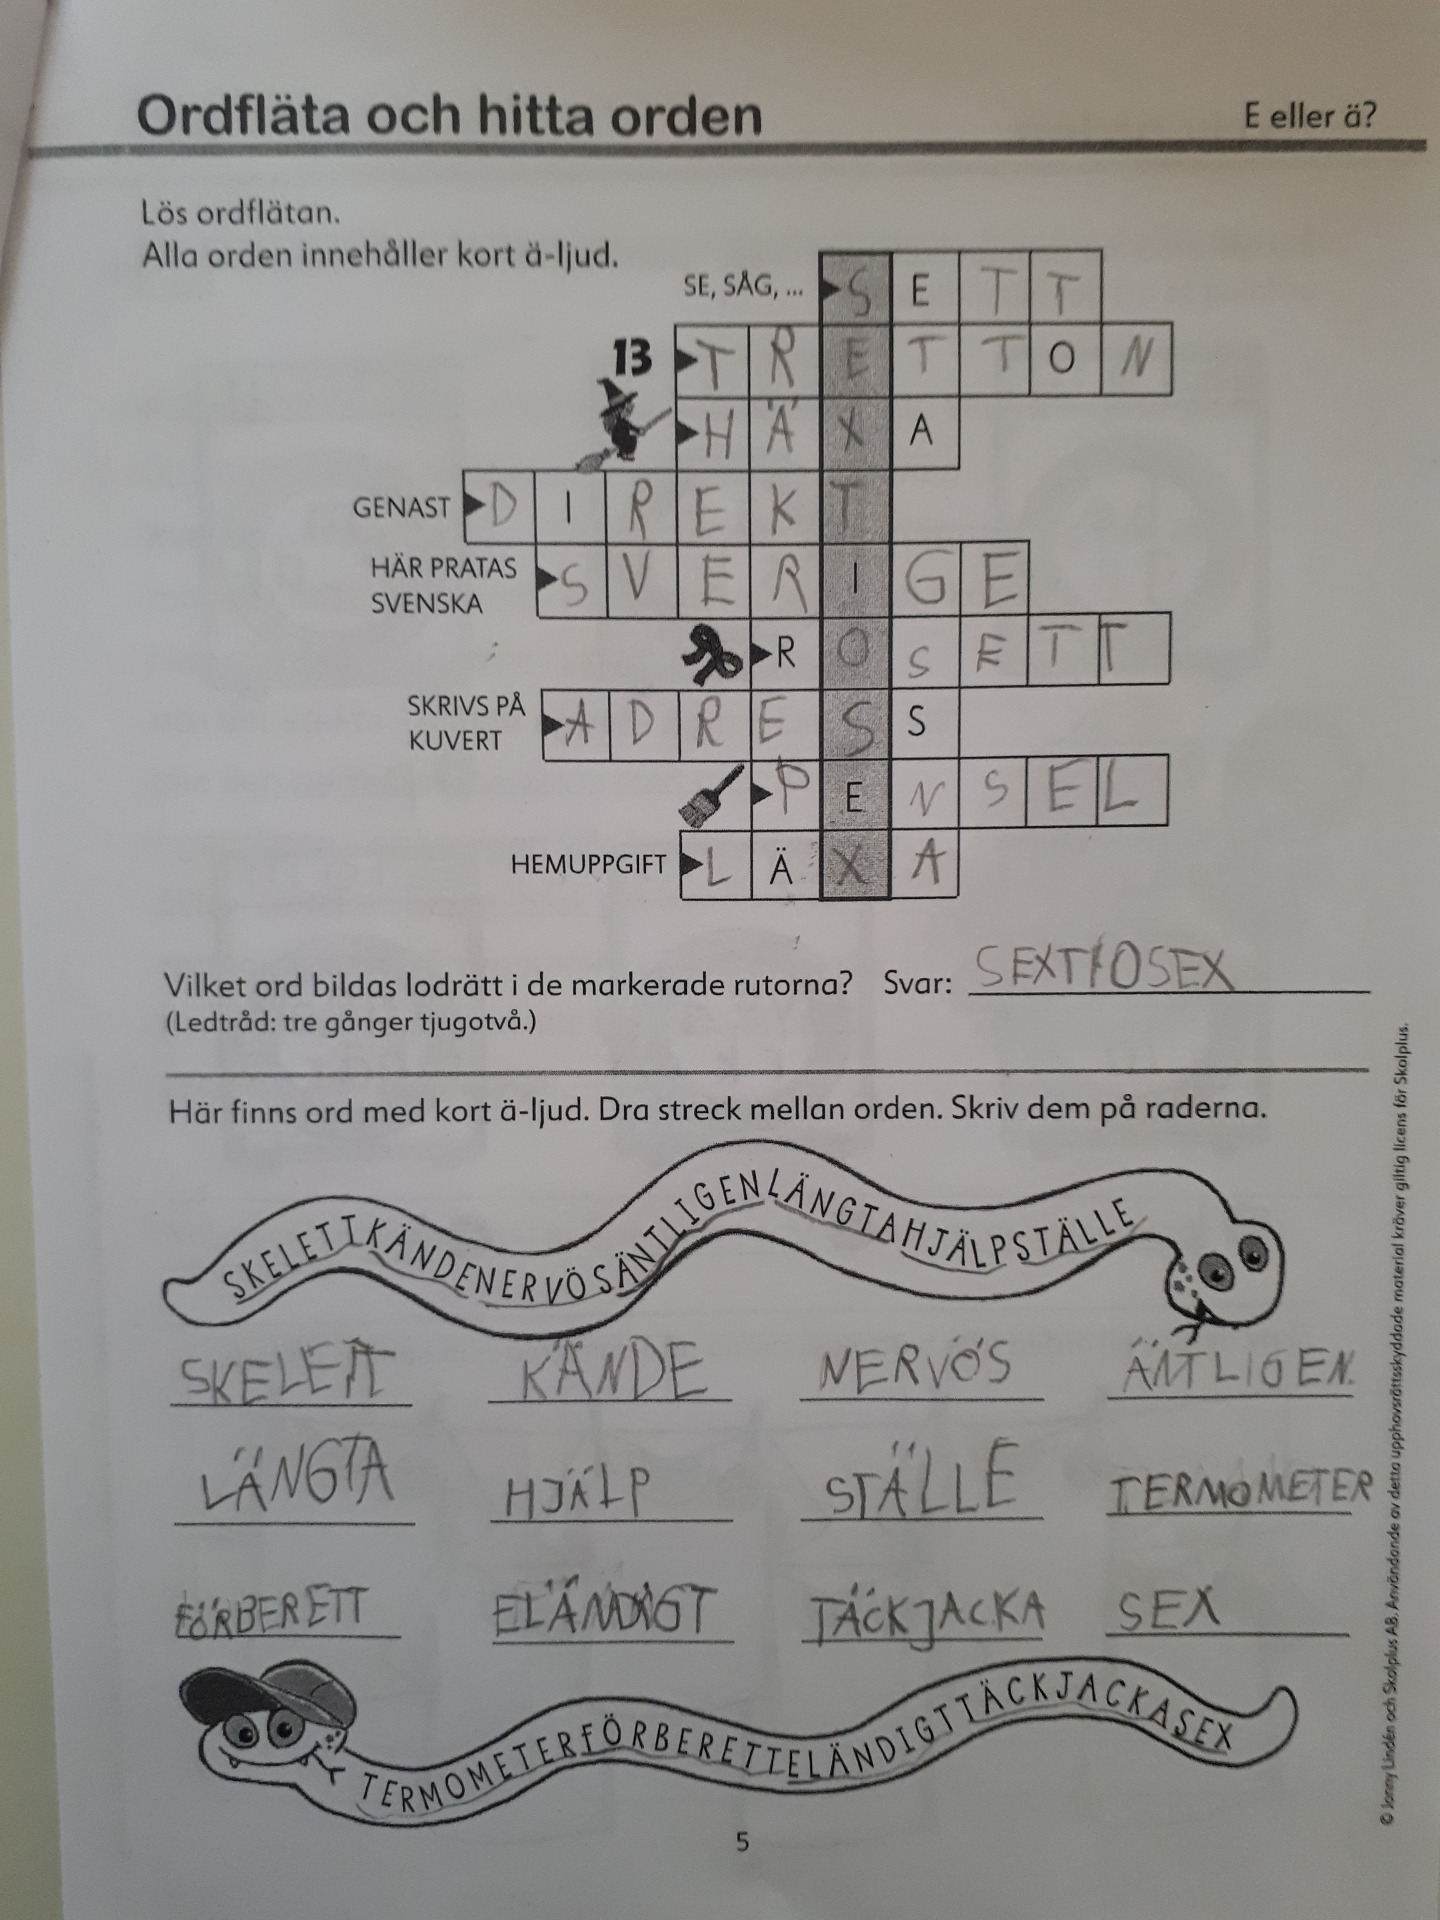 Ordfläta och hitta orden
E eller ä?
Lös ordflätan.
Alla orden innehåller kort ä-ljud.
SE, SÅG, ... SETT
13 TRETTON
HÄXA
GENAST DIREKT
HÄR PRATAS
SVENSKA SVERIGE
ROSETT
SKRIVS PÅ
KUVERT ADRESS
PENSEL
HEMUPPGIFT LÄXA
Vilket ord bildas lodrätt i de markerade rutorna? Svar: SEXTIOSEX
(Ledtråd: tre gånger tjugotvå.)
Här finns ord med kort ä-ljud. Dra streck mellan orden. Skriv dem på raderna.
SKELETTKÄNDENERVÖSÄNTLIGENLÄNGTAHJÄLPSTÄLLE
SKELETT KÄNDE NERVÖS ÄNTLIGEN
LÄNGTA HJÄLP STÄLLE TERMOMETER
FÖRBERETT ELÄNDIGT TÄCKJACKA SEX
TERMOMETERFÖRBERETTELÄNDIGTTÄCKJACKASEX
5
© Jonny Lindén och Skolplus AB. Användande av detta upphovsrättsskyddade material kräver giltig licens för Skolplus.